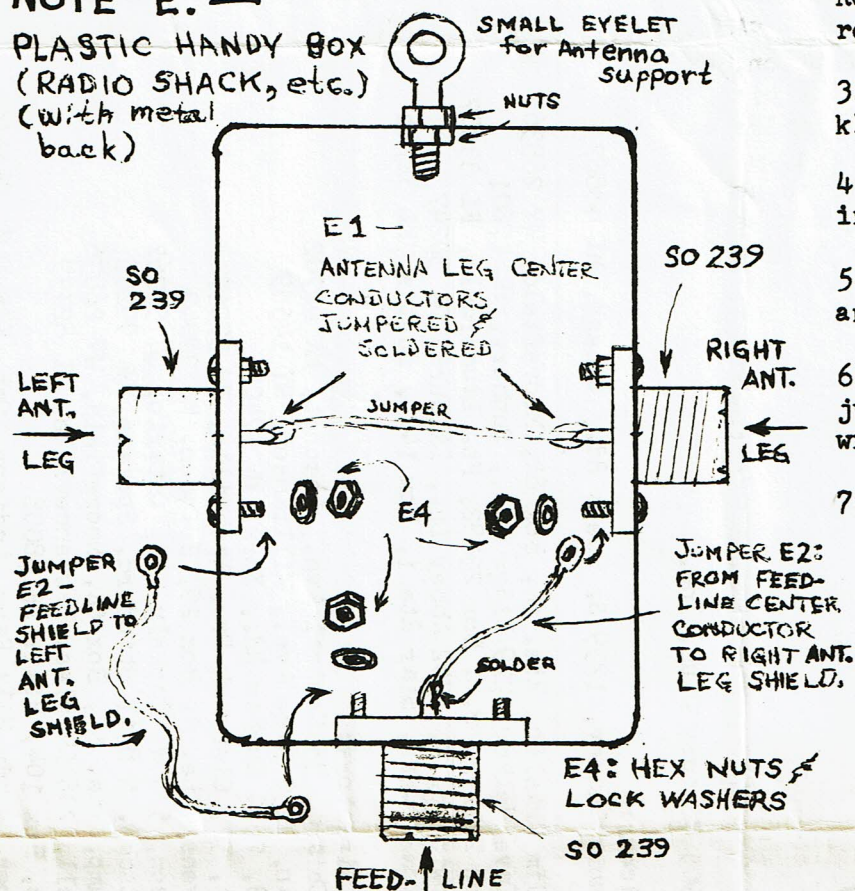 NOTE E. —
PLASTIC HANDY BOX
(RADIO SHACK, etc.)
(with metal
back)
SMALL EYELET
for Antenna
support
NUTS
E1 —
ANTENNA LEG CENTER
CONDUCTORS
JUMPERED &
SOLDERED
SO
239
SO 239
LEFT
ANT.
LEG
JUMPER
RIGHT
ANT.
LEG
E4
JUMPER
E2 —
FEEDLINE
SHIELD TO
LEFT
ANT.
LEG
SHIELD.
JUMPER E2:
FROM FEED-
LINE CENTER
CONDUCTOR
TO RIGHT ANT.
LEG SHIELD.
SOLDER
E4: HEX NUTS &
LOCK WASHERS
SO 239
FEED- LINE
3
4
5
6
7